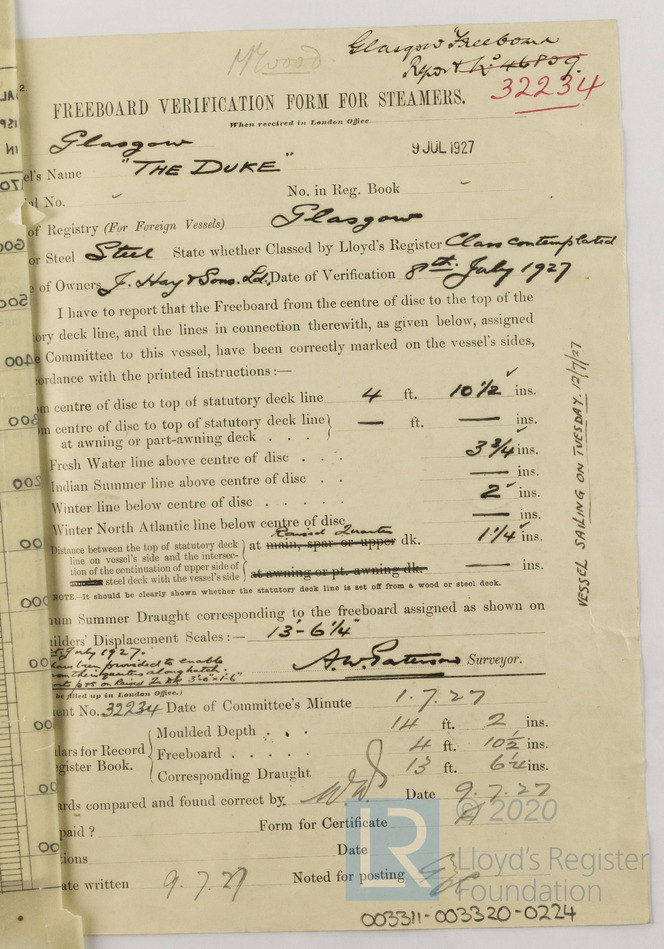 Mr Wood
Glasgow Freeboard
Report No 46809
32234
FREEBOARD VERIFICATION FORM FOR STEAMERS.
When received in London Office
Glasgow
9 JUL 1927
el's Name "THE DUKE"
al No. No. in Reg. Book
of Registry (For Foreign Vessels) Glasgow
or Steel Steel State whether Classed by Lloyd's Register Class contemplated
e of Owners J. Hay & Sons. Ld. Date of Verification 8th. July 1927
I have to report that the Freeboard from the centre of disc to the top of the
ory deck line, and the lines in connection therewith, as given below, assigned
e Committee to this vessel, have been correctly marked on the vessel's sides,
ordance with the printed instructions:—
m centre of disc to top of statutory deck line 4 ft. 10 1/2 ins.
m centre of disc to top of statutory deck line — ft. — ins.
at awning or part-awning deck . . .
Fresh Water line above centre of disc . . . 3 3/4 ins.
Indian Summer line above centre of disc . . — ins.
Winter line below centre of disc . . . . . 2 ins.
Winter North Atlantic line below centre of disc — ins.
Raised Quarter
Distance between the top of statutory deck
line on vessel's side and the intersec- at main, spar or upper dk. 1 1/4 ins.
tion of the continuation of upper side of
steel deck with the vessel's side at awning or pt. awning dk. — ins.
NOTE.—It should be clearly shown whether the statutory deck line is set off from a wood or steel deck.
um Summer Draught corresponding to the freeboard assigned as shown on
ilders' Displacement Scales:— 13'-6 1/4"
July 1927.
been provided to enable
A.W. Paterson Surveyor.
be filled up in London Office.)
ent No. 32234 Date of Committee's Minute 1.7.27
Moulded Depth . . . 14 ft. 2 ins.
lars for Record Freeboard . . . . . 4 ft. 10 1/2 ins.
gister Book. Corresponding Draught 13 ft. 6 1/4 ins.
ards compared and found correct by Date 9.7.27
paid ? Form for Certificate
tions Date
ate written 9.7.27 Noted for posting
VESSEL SAILING ON TUESDAY. 12/7/27
© 2020
LR
Lloyd's Register
Foundation
003311-003320-0224